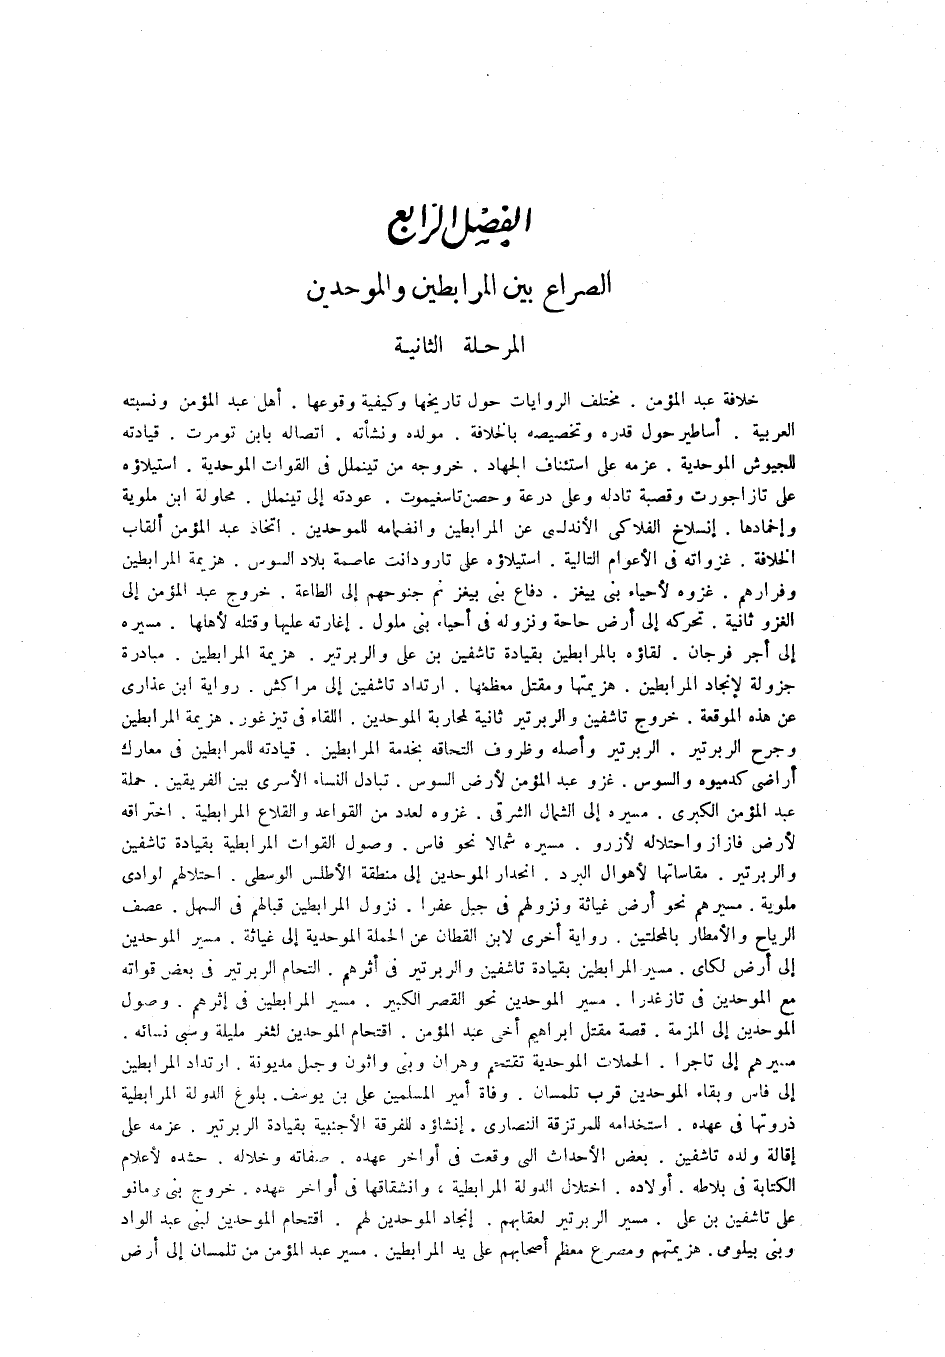 الفصل الرابع
الصراع بين المرابطين والموحدين
المرحلة الثانية
خلافة عبد المؤمن . مختلف الروايات حول تاريخها وكيفية وقوعها . أهل عبد المؤمن ونسبته
العربية . أساطير حول قدره وتخصيصه بالخلافة . مولده ونشأته . اتصاله بابن تومرت . قيادته
للجيوش الموحدية . عزمه على استئناف الجهاد . خروجه من تينملل فى القوات الموحدية . استيلاؤه
على تازاجورت وقصبة تادله وعلى درعة وحصن تاسغيموت . عودته إلى تينملل . محاولة ابن ملوية
وإخمادها . إنسلاخ الفلاكى الأندلسى عن المرابطين وانضمامه للموحدين . اتخاذ عبد المؤمن ألقاب
الخلافة . غزواته فى الأعوام التالية . استيلاؤه على تارودانت عاصمة بلاد السوس . هزيمة المرابطين
وفرارهم . غزوه لأحياء بنى ييغز . دفاع بنى ييغز ثم جنوحهم إلى الطاعة . خروج عبد المؤمن إلى
الغزو ثانية . تحركه إلى أرض حاحة ونزوله فى أحياء بنى ملول . إغارته عليها وقتله لأهلها . مسيره
إلى أجر فرجان . لقاؤه بالمرابطين بقيادة تاشفين بن على والربرتير . هزيمة المرابطين . مبادرة
جزولة لإنجاد المرابطين . هزيمتها ومقتل معظمها . ارتداد تاشفين إلى مراكش . رواية ابن عذارى
عن هذه الموقعة . خروج تاشفين والربرتير ثانية لمحاربة الموحدين . اللقاء فى تيزغور . هزيمة المرابطين
وجرح الربرتير . الربرتير وأصله وظروف التحاقه بخدمة المرابطين . قيادته للمرابطين فى معارك
أراضى كدميوه والسوس . غزو عبد المؤمن لأرض السوس . تبادل النساء الأسرى بين الفريقين . حملة
عبد المؤمن الكبرى . مسيره إلى الشمال الشرقى . غزوه لعدد من القواعد والقلاع المرابطية . اختراقه
لأرض فازاز واحتلاله لأزرو . مسيره شمالا نحو فاس . وصول القوات المرابطية بقيادة تاشفين
والربرتير . مقاساتها لأهوال البرد . انحدار الموحدين إلى منطقة الأطلس الوسطى . احتلالهم لوادى
ملوية . مسيرهم نحو أرض غياثة ونزولهم فى جبل عفرا . نزول المرابطين قبالهم فى السهل . عصف
الرياح والأمطار بالمحلتين . رواية أخرى لابن القطان عن الحملة الموحدية إلى غياثة . مسير الموحدين
إلى أرض لكاى . مسير المرابطين بقيادة تاشفين والربرتير فى أثرهم . التحام الربرتير فى بعض قواته
مع الموحدين فى تازغدرا . مسير الموحدين نحو القصر الكبير . مسير المرابطين فى إثرهم . وصول
الموحدين إلى المزمة . قصة مقتل ابراهيم أخى عبد المؤمن . اقتحام الموحدين لثغر مليلة وسبى نسائه .
مسيرهم إلى تاجرا . الحملات الموحدية تقتحم وهران وبنى وانون وجبل مديونة . ارتداد المرابطين
إلى فاس وبقاء الموحدين قرب تلمسان . وفاة أمير المسلمين على بن يوسف . بلوغ الدولة المرابطية
ذروتها فى عهده . استخدامه للمرتزقة النصارى . إنشاؤه للفرقة الأجنبية بقيادة الربرتير . عزمه على
إقالة ولده تاشفين . بعض الأحداث التى وقعت فى أواخر عهده . صفاته وخلاله . حشده لأعلام
الكتابة فى بلاطه . أولاده . اختلال الدولة المرابطية ، وانشقاقها فى أواخر عهده . خروج بنى ومانو
على تاشفين بن على . مسير الربرتير لعقابهم . إنجاد الموحدين لهم . اقتحام الموحدين لبنى عبد الواد
وبنى بيلومى . هزيمتهم ومصرع معظم أصحابهم على يد المرابطين . مسير عبد المؤمن من تلمسان إلى أرض